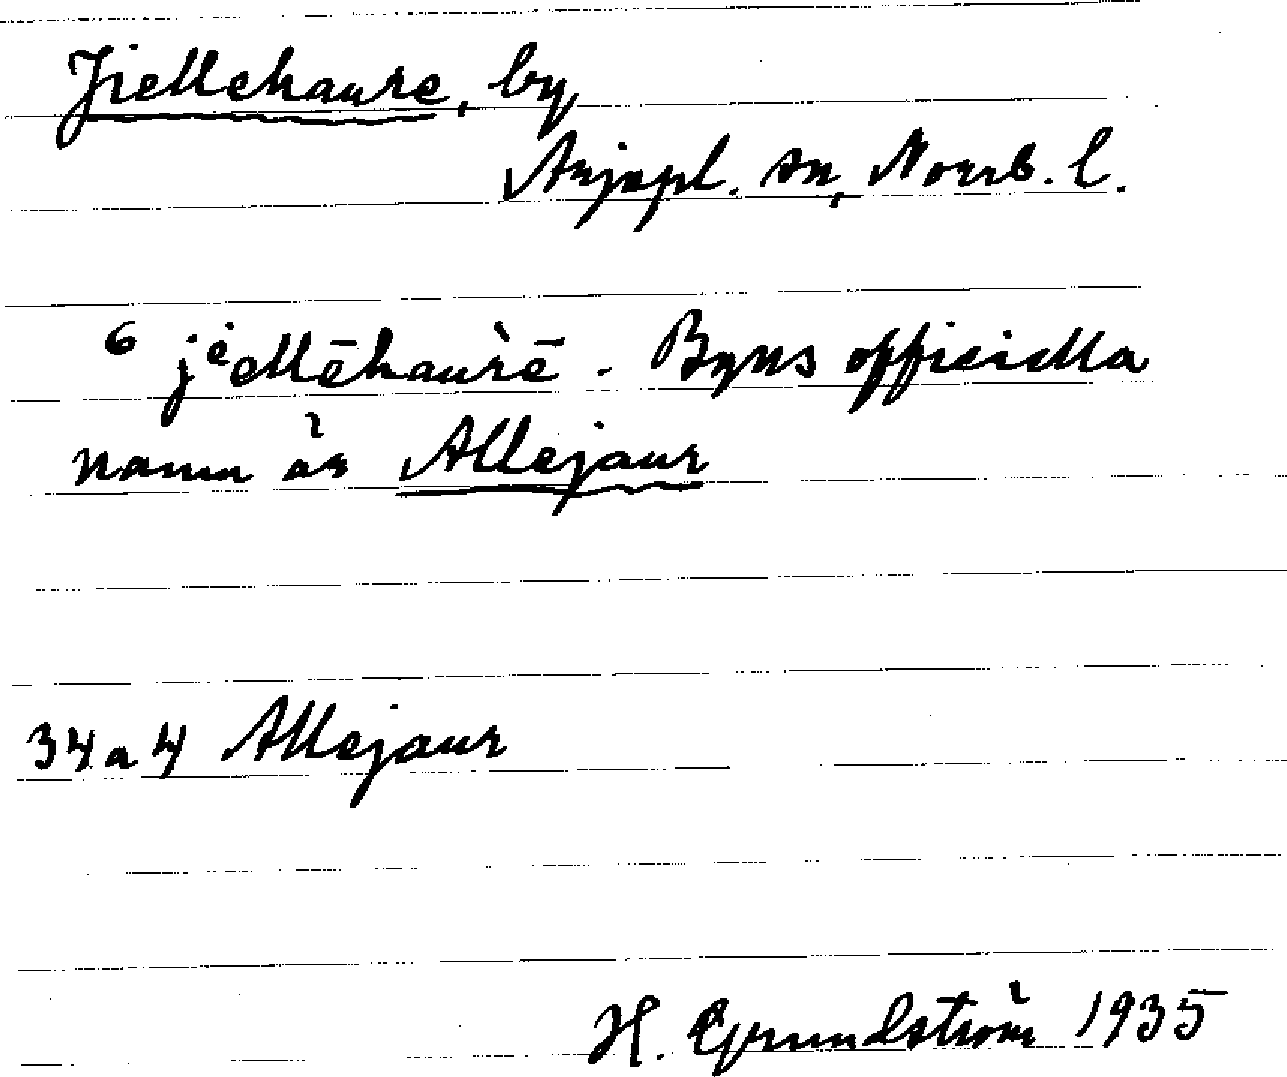 Jiellehaure, by
Arjepl. sn, Norrb. l.
6 jᵉellēhau̇rē. Byns officiella
namn är Allejaur
34 a 4 Allejaur
H. Grundström 1935